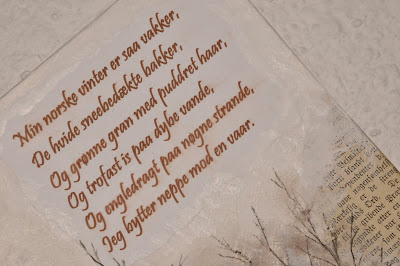 Min norske vinter er saa vakker,
De hvide sneebedækte bakker,
Og grønne gran med puddret haar,
Og trofast is paa dybe vande,
Og engledragt paa nøgne strande,
Jeg bytter neppe mod en vaar.